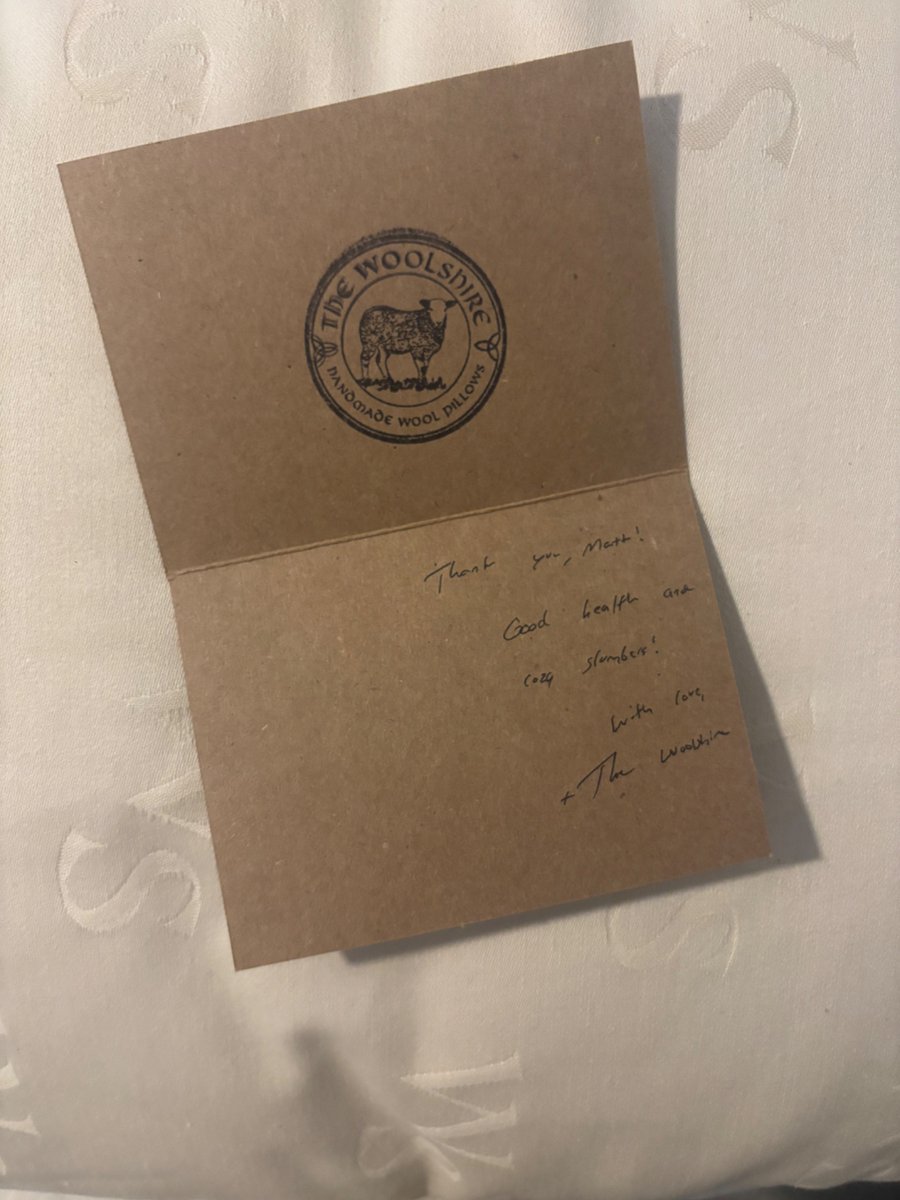 THE WOOLSHIRE
HANDMADE WOOL PILLOWS
Thank you, Matt!
Good health and
cozy slumbers!
With love,
+ The Woolshire